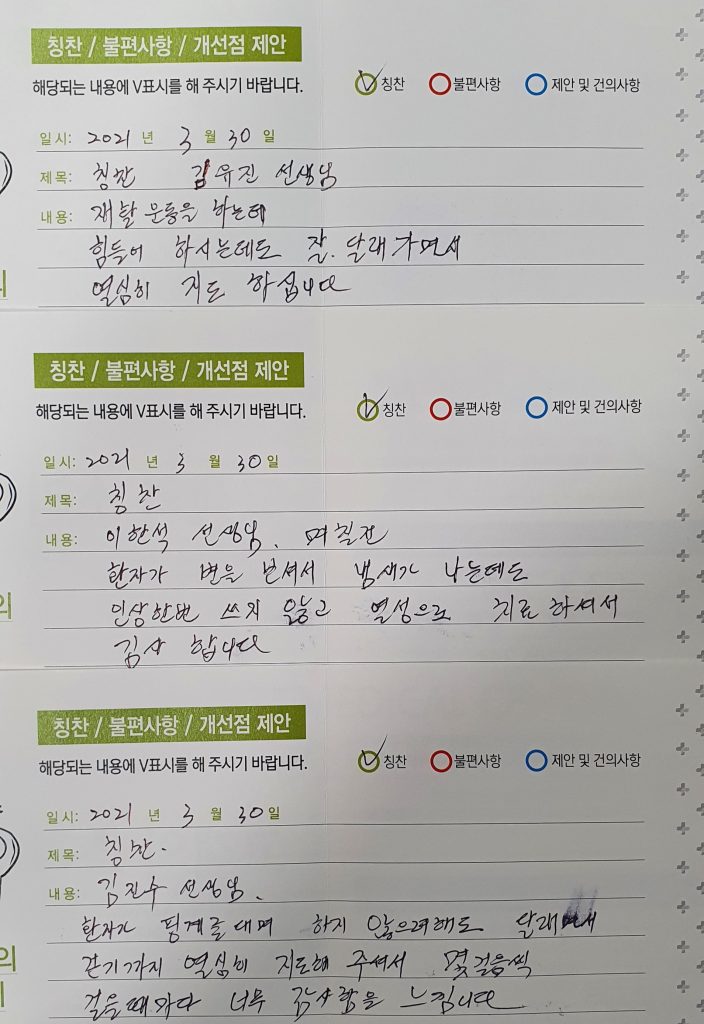 칭찬 / 불편사항 / 개선점 제안
해당되는 내용에 V표시를 해 주시기 바랍니다. 칭찬 불편사항 제안 및 건의사항
일시: 2021 년 3 월 30 일
제목: 칭찬 김유진 선생님
내용: 재활 운동을 하는데
힘들어 하시는데도 잘. 달래가면서
열심히 지도 하십니다
칭찬 / 불편사항 / 개선점 제안
해당되는 내용에 V표시를 해 주시기 바랍니다. 칭찬 불편사항 제안 및 건의사항
일시: 2021 년 3 월 30 일
제목: 칭찬
내용: 이한석 선생님. 며칠전
환자가 변을 보셔서 냄새가 나는데도
인상한번 쓰지 않고 열성으로 치료 하셔서
감사 합니다
칭찬 / 불편사항 / 개선점 제안
해당되는 내용에 V표시를 해 주시기 바랍니다. 칭찬 불편사항 제안 및 건의사항
일시: 2021 년 3 월 30 일
제목: 칭찬.
내용: 김진수 선생님.
환자가 핑계를 대며 하지 않으려해도 달래면서
걷기까지 열심히 지도해 주셔서 몇걸음씩
걸을때마다 너무 감사함을 느낍니다